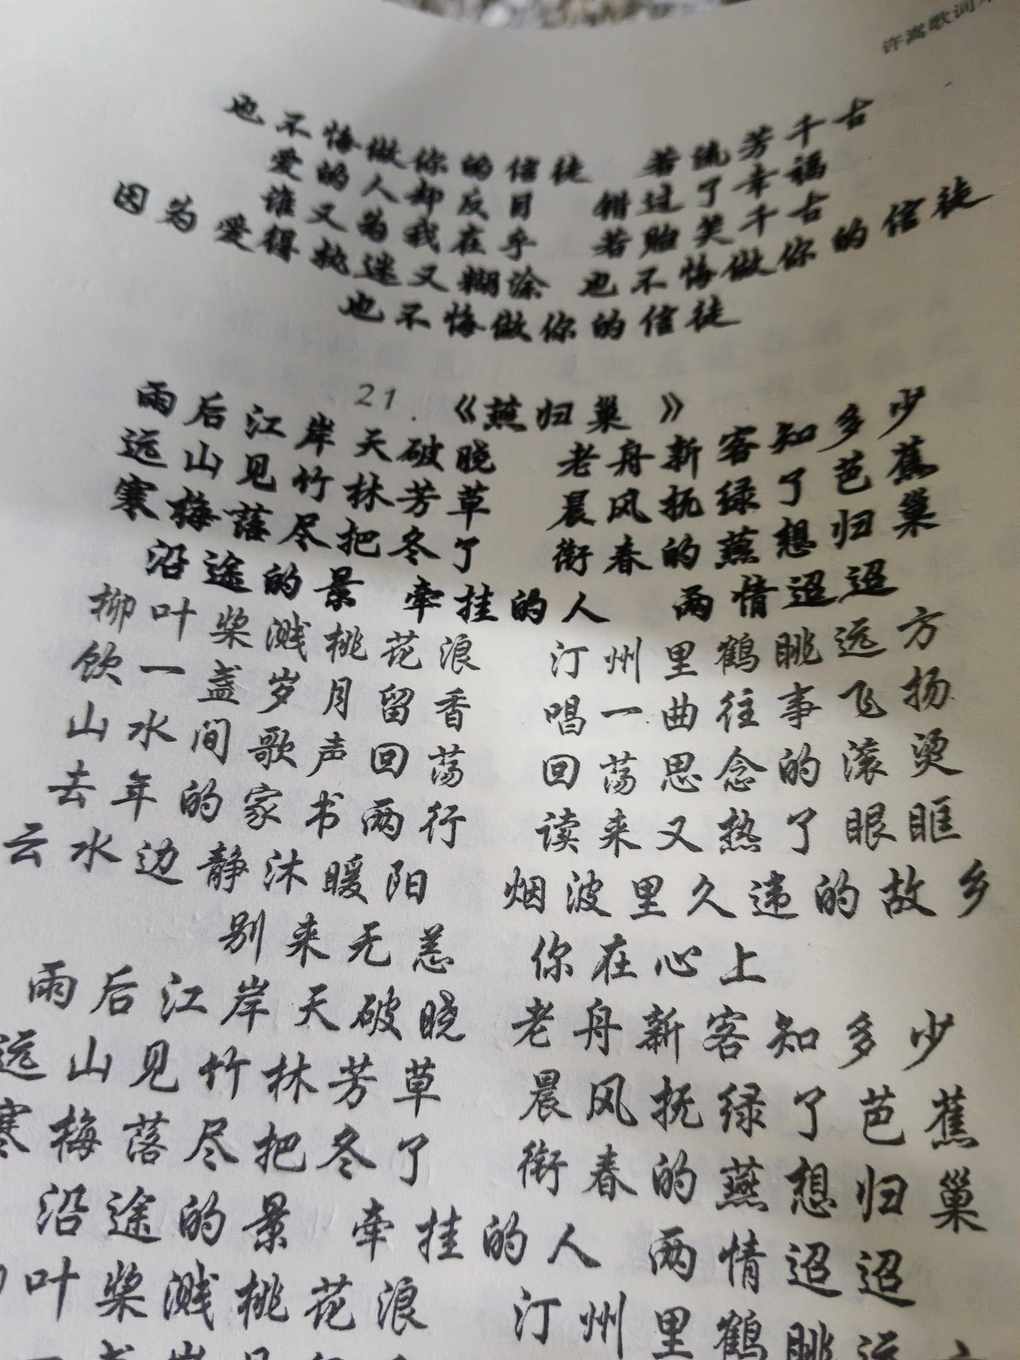 许嵩歌词
也不悔做你的信徒 若流芳千古
爱的人却反目 错过了幸福
谁又为我在乎 若贻笑千古
因为爱得执迷又糊涂 也不悔做你的信徒
也不悔做你的信徒
21.《燕归巢》
雨后江岸天破晓 老舟新客知多少
远山见竹林芳草 晨风抚绿了芭蕉
寒梅落尽把冬了 衔春的燕想归巢
沿途的景 牵挂的人 两情迢迢
柳叶桨溅桃花浪 汀州里鹤眺远方
饮一盏岁月留香 唱一曲往事飞扬
山水间歌声回荡 回荡思念的滚烫
去年的家书两行 读来又热了眼眶
云水边静沐暖阳 烟波里久违的故乡
别来无恙 你在心上
雨后江岸天破晓 老舟新客知多少
远山见竹林芳草 晨风抚绿了芭蕉
寒梅落尽把冬了 衔春的燕想归巢
沿途的景 牵挂的人 两情迢迢
叶桨溅桃花浪 汀州里鹤眺远